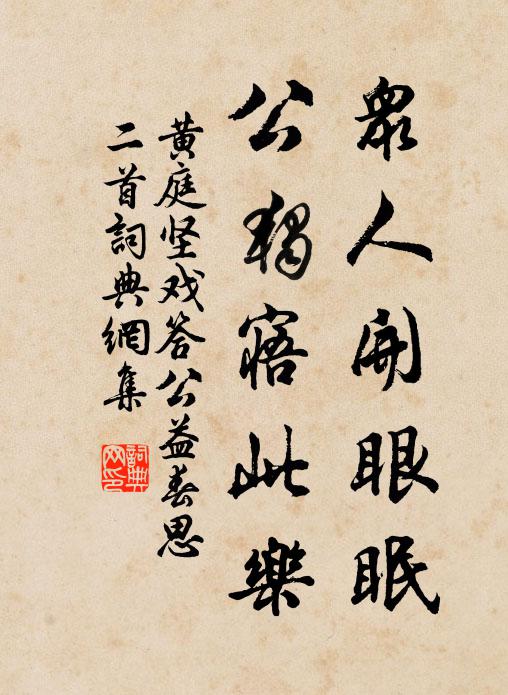 衆人開眼眠
公獨寤此樂
黄庭坚戏答公益春思
二首詞典網集
詞典网印